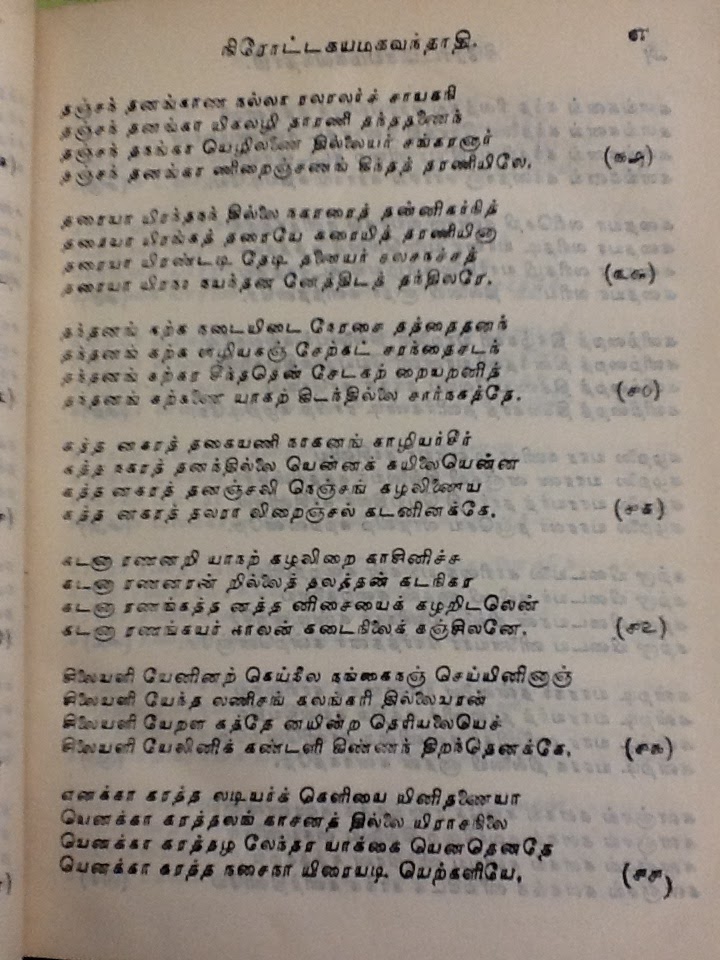 நிரோட்டகயமகவந்தாதி.
எ
தஞ்சந் தனங்காண நல்லா ரலரலர்ச் சாயகநி
தஞ்சந் தனங்கா யிகலழி தாரணி தந்ததணைந்
தஞ்சந் தநங்கா யெழிலணை தில்லையர் சங்கரனார்
தஞ்சந் தனங்கா ணிறைஞ்சணங் கிந்தத் தரணியிலே.
தரையா யிரந்தநந் தில்லை நகரரைத் தன்னிகர்நித்
தரையா யிரங்கத் தரையே கரையித் தரணியினா
தரையா யிரண்டடி தேடி தனையர் சலசநச்சத்
தரையா யிரநா நயந்தன னேத்திடத் தந்திலரே.
தந்தனங் கற்க நடையிடை நேரசை தத்தைதனந்
தந்தனங் கற்க ளழியகஞ் சேற்கட் சரந்தைசடந்
தந்தனங் கற்கர சிந்ததென் சேடகற் றையறனித்
தந்தனங் கற்கணை யாகற் கிடந்தில்லை சார்நகத்தே. (௪௦)
கத்த னகரத் தகையணி நாகனங் காழியர்சீர்
கத்த நகரத் தனந்தில்லை யென்னக் கயிலையென்ன
கத்த னகரத் தனஞ்சலி நெஞ்சங் கழலிணைய
கத்த னகரத் தலரா லிறைஞ்சல் கடனினக்கே. (௪௧)
கடனா ரணனறி யாநற் கழலிறை காஜினிச்ச
கடனா ரணனரன் றில்லைத் தலத்தன் கடநிகர
கடனா ரணங்கத்த னத்த னிசையைக் கழறிடலென்
கடனா ரணங்கயர் காலன் கடைநிலைக் கஞ்சிலனே. (௪௨)
சிலையளி யேனினற் கெய்லை நங்கைநஞ் செய்யினினஞ்
சிலையளி யேந்த லணிசங் கலங்கரி தில்லையரன்
சிலையளி யேறள கத்தே னயின்ற தெரியலையெச்
சிலையளி யேலினிக் கண்டளி திண்ணந் திறந்தெனக்கே. (௪௩)
எனக்கா கரத்த லடியர்க் கெளியை யினிதணையா
யெனக்கா கரத்தலங் காசனத் தில்லை யிராசநிலை
யெனக்கா கரத்தழ லேந்தர யாக்கை யெனதெனதே
யெனக்கா கரத்த நசைநா யிரையடி யெற்களியே. (௪௪)